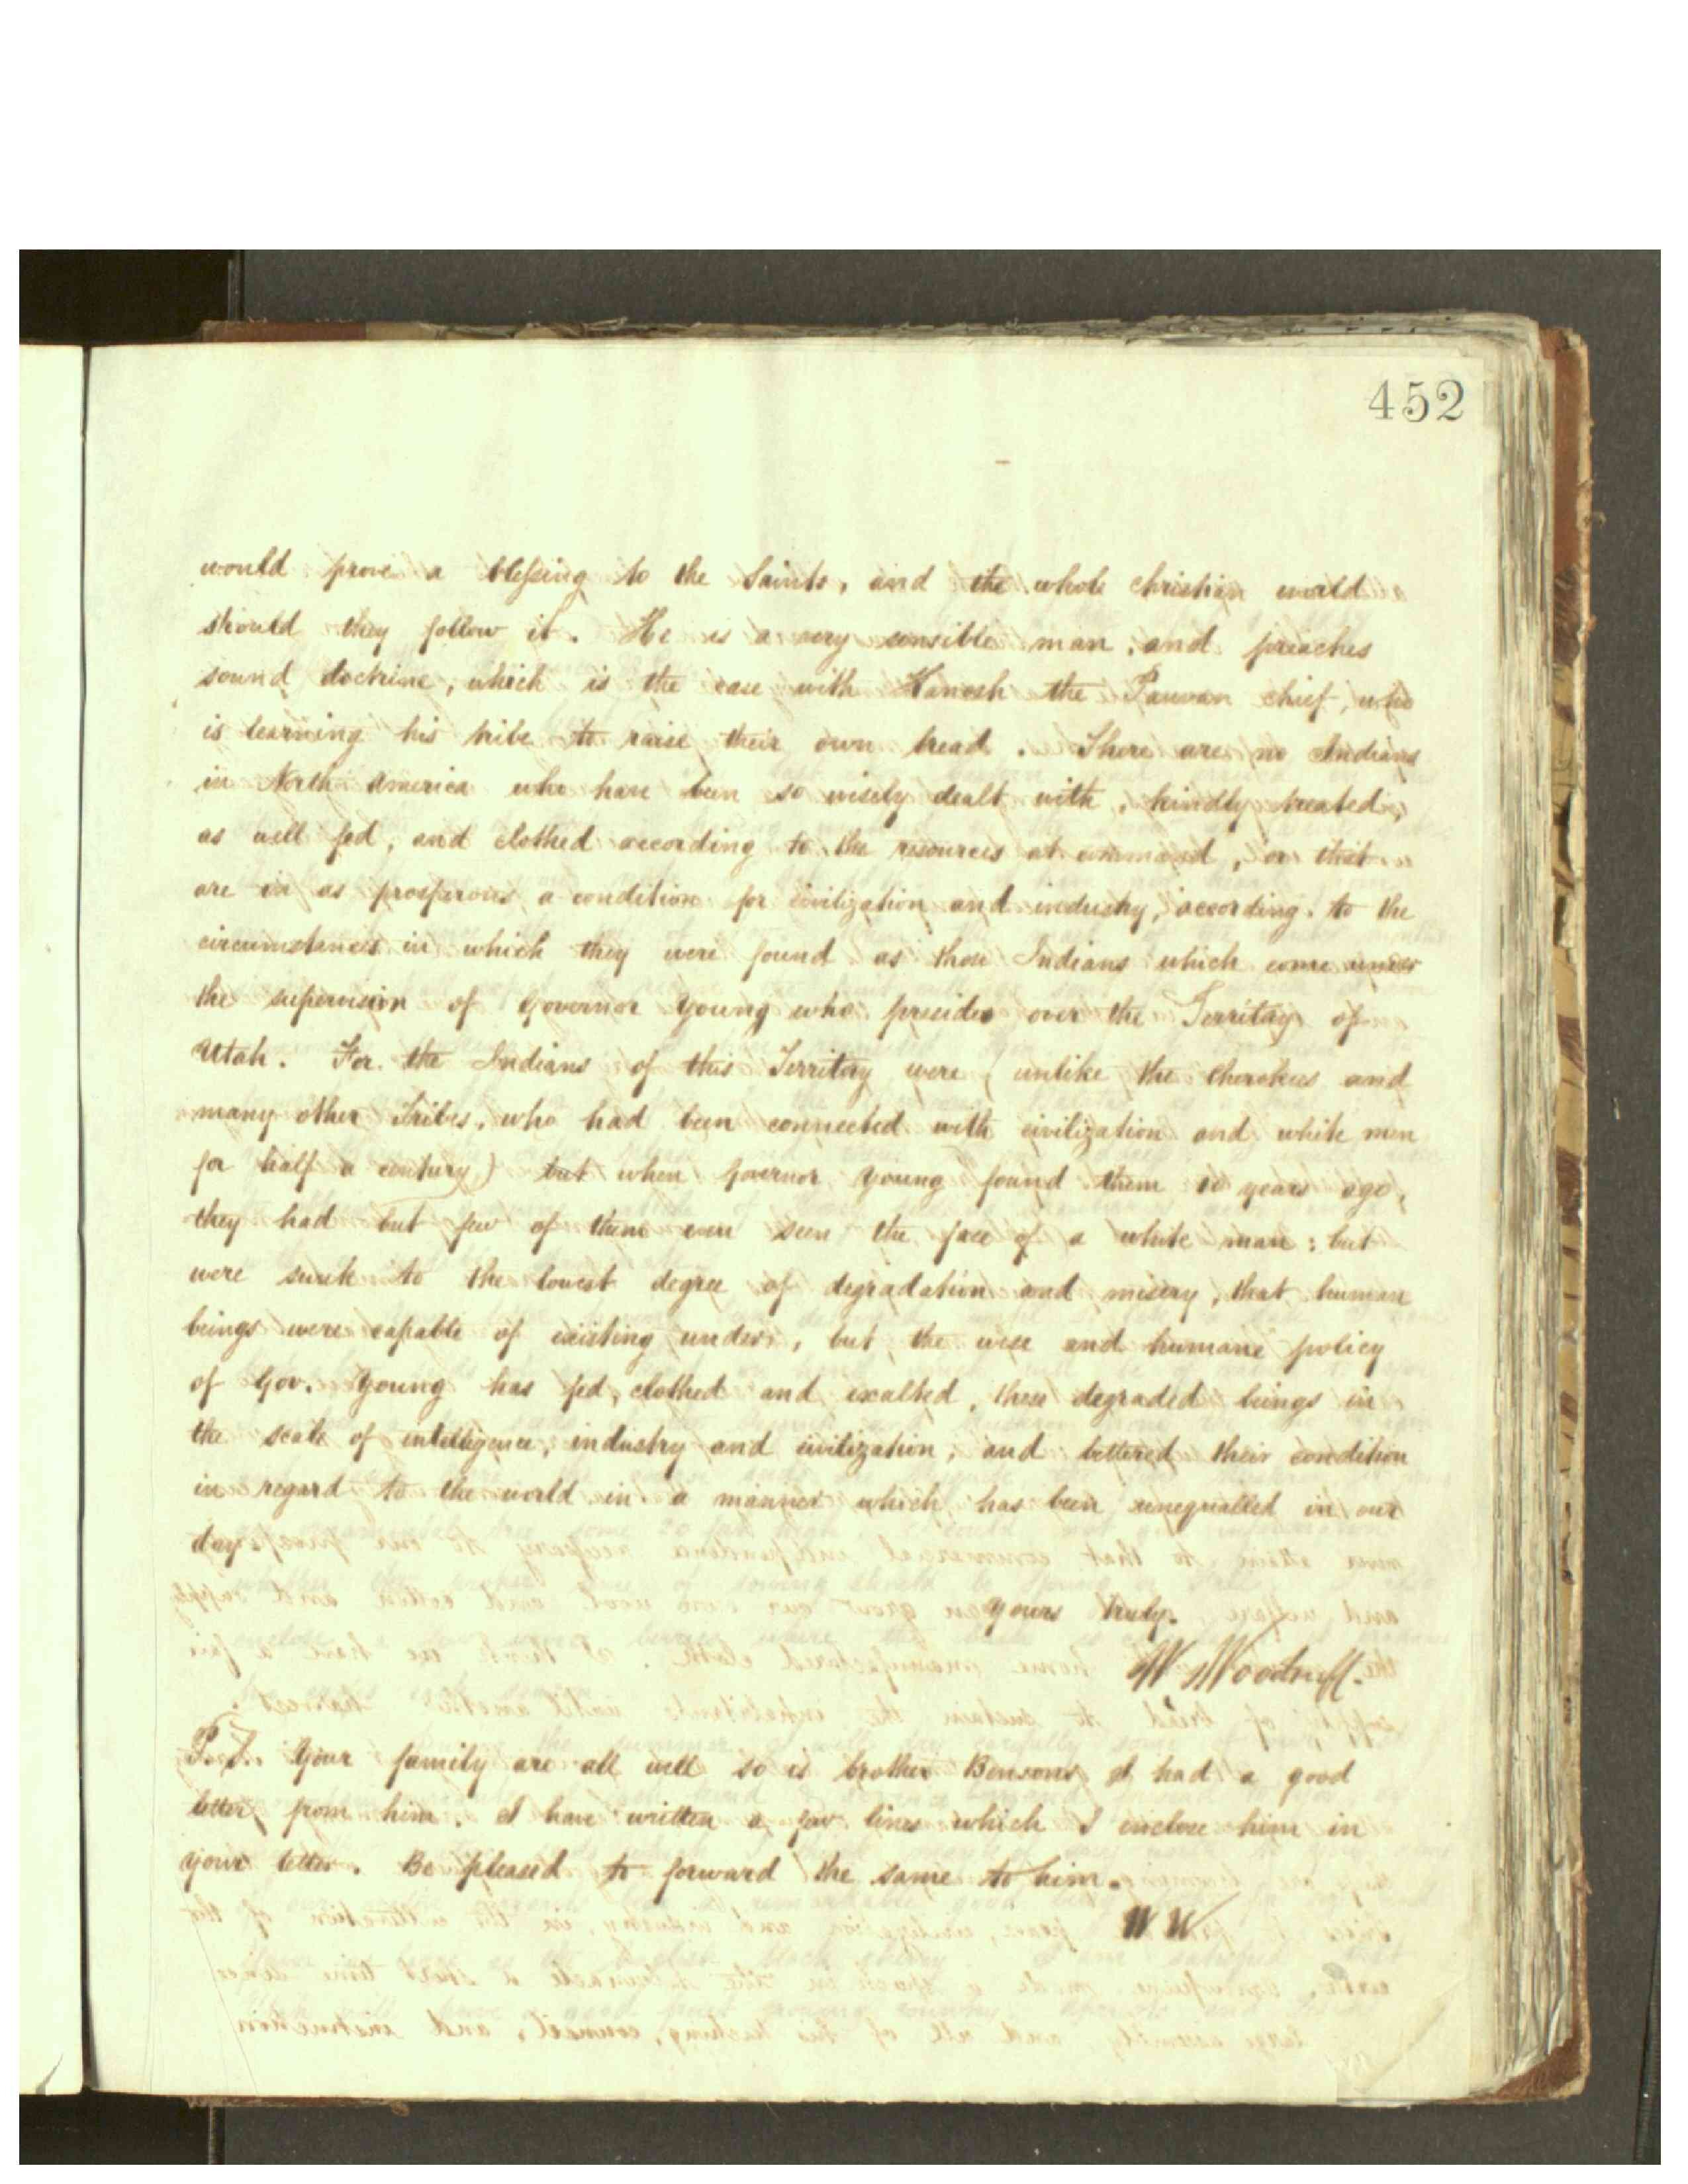 452
would prove a blessing to the Saints, and the whole christian world
should they follow it. He is a very sensible man, and preaches
sound doctrine, which is the case with Kanosh the Pauvan chief, who
is learning his tribe to raise their own bread. There are no Indians
in North America who have been so wisely dealt with, kindly treated,
as well fed, and clothed according to the resources at command, or that
are in as prosperous a condition for civilization and industry, according to the
circumstances in which they were found as those Indians which come under
the supervision of Governor Young who presides over the Territory of
Utah. For the Indians of this Territory were (unlike the Cherokees and
many other Tribes, who had been connected with civilization and white men
for half a century) but when Governor Young found them 10 years ago,
they had but few of them ever seen the face of a white man: but
were sunk to the lowest degree of degradation and misery, that human
beings were capable of existing under, but the wise and humane policy
of Gov. Young has fed, clothed and exalted, these degraded beings in
the scale of intelligence, industry and civilization, and bettered their condition
in regard to the world in a manner which has been unequalled in our
day.
Yours truly.
W Woodruff.
P.S. Your family are all well so is brother Bensons, I had a good
letter from him. I have written a few lines which I enclose him in
your letter. Be pleased to forward the same to him.
W W